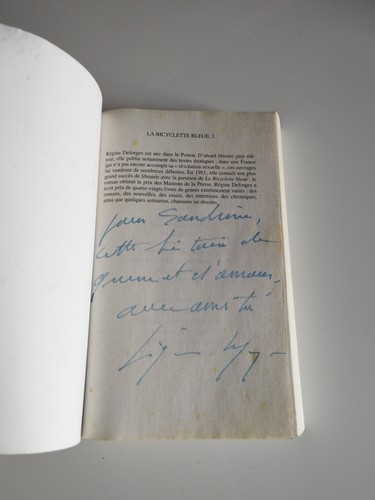 LA BICYCLETTE BLEUE, 3
Régine Deforges est née dans le Poitou. D'abord libraire puis édi-
teur, elle publie notamment des textes érotiques ; dans une France
qui n'a pas encore accompli sa « révolution sexuelle », ces ouvrages
lui vaudront de nombreux déboires. En 1981, elle connaît son plus
grand succès de librairie avec la parution de La Bicyclette bleue ; le
roman obtient le prix des Maisons de la Presse. Régine Deforges a
écrit près de quatre-vingts livres de genres extrêmement variés : des
romans, des nouvelles, des essais, des entretiens, des chroniques,
ainsi que quelques scénarios, chansons ou dessins.
pour Sandrine,
cette histoire de
guerre et d'amour,
avec amitié